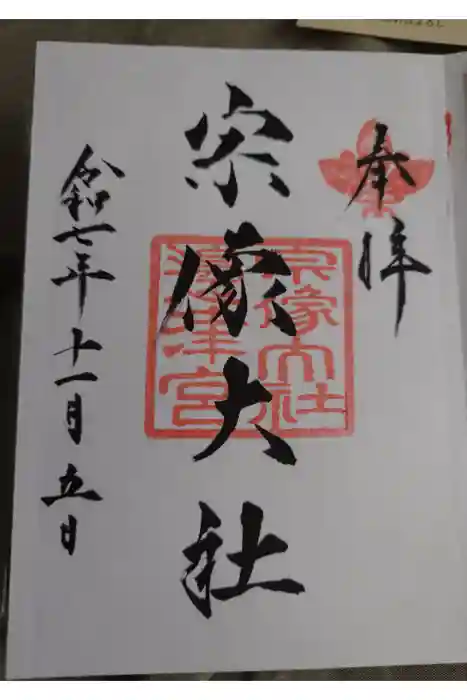 奉拝
宗像大社
宗像大社
邊津宮
令和七年十一月五日